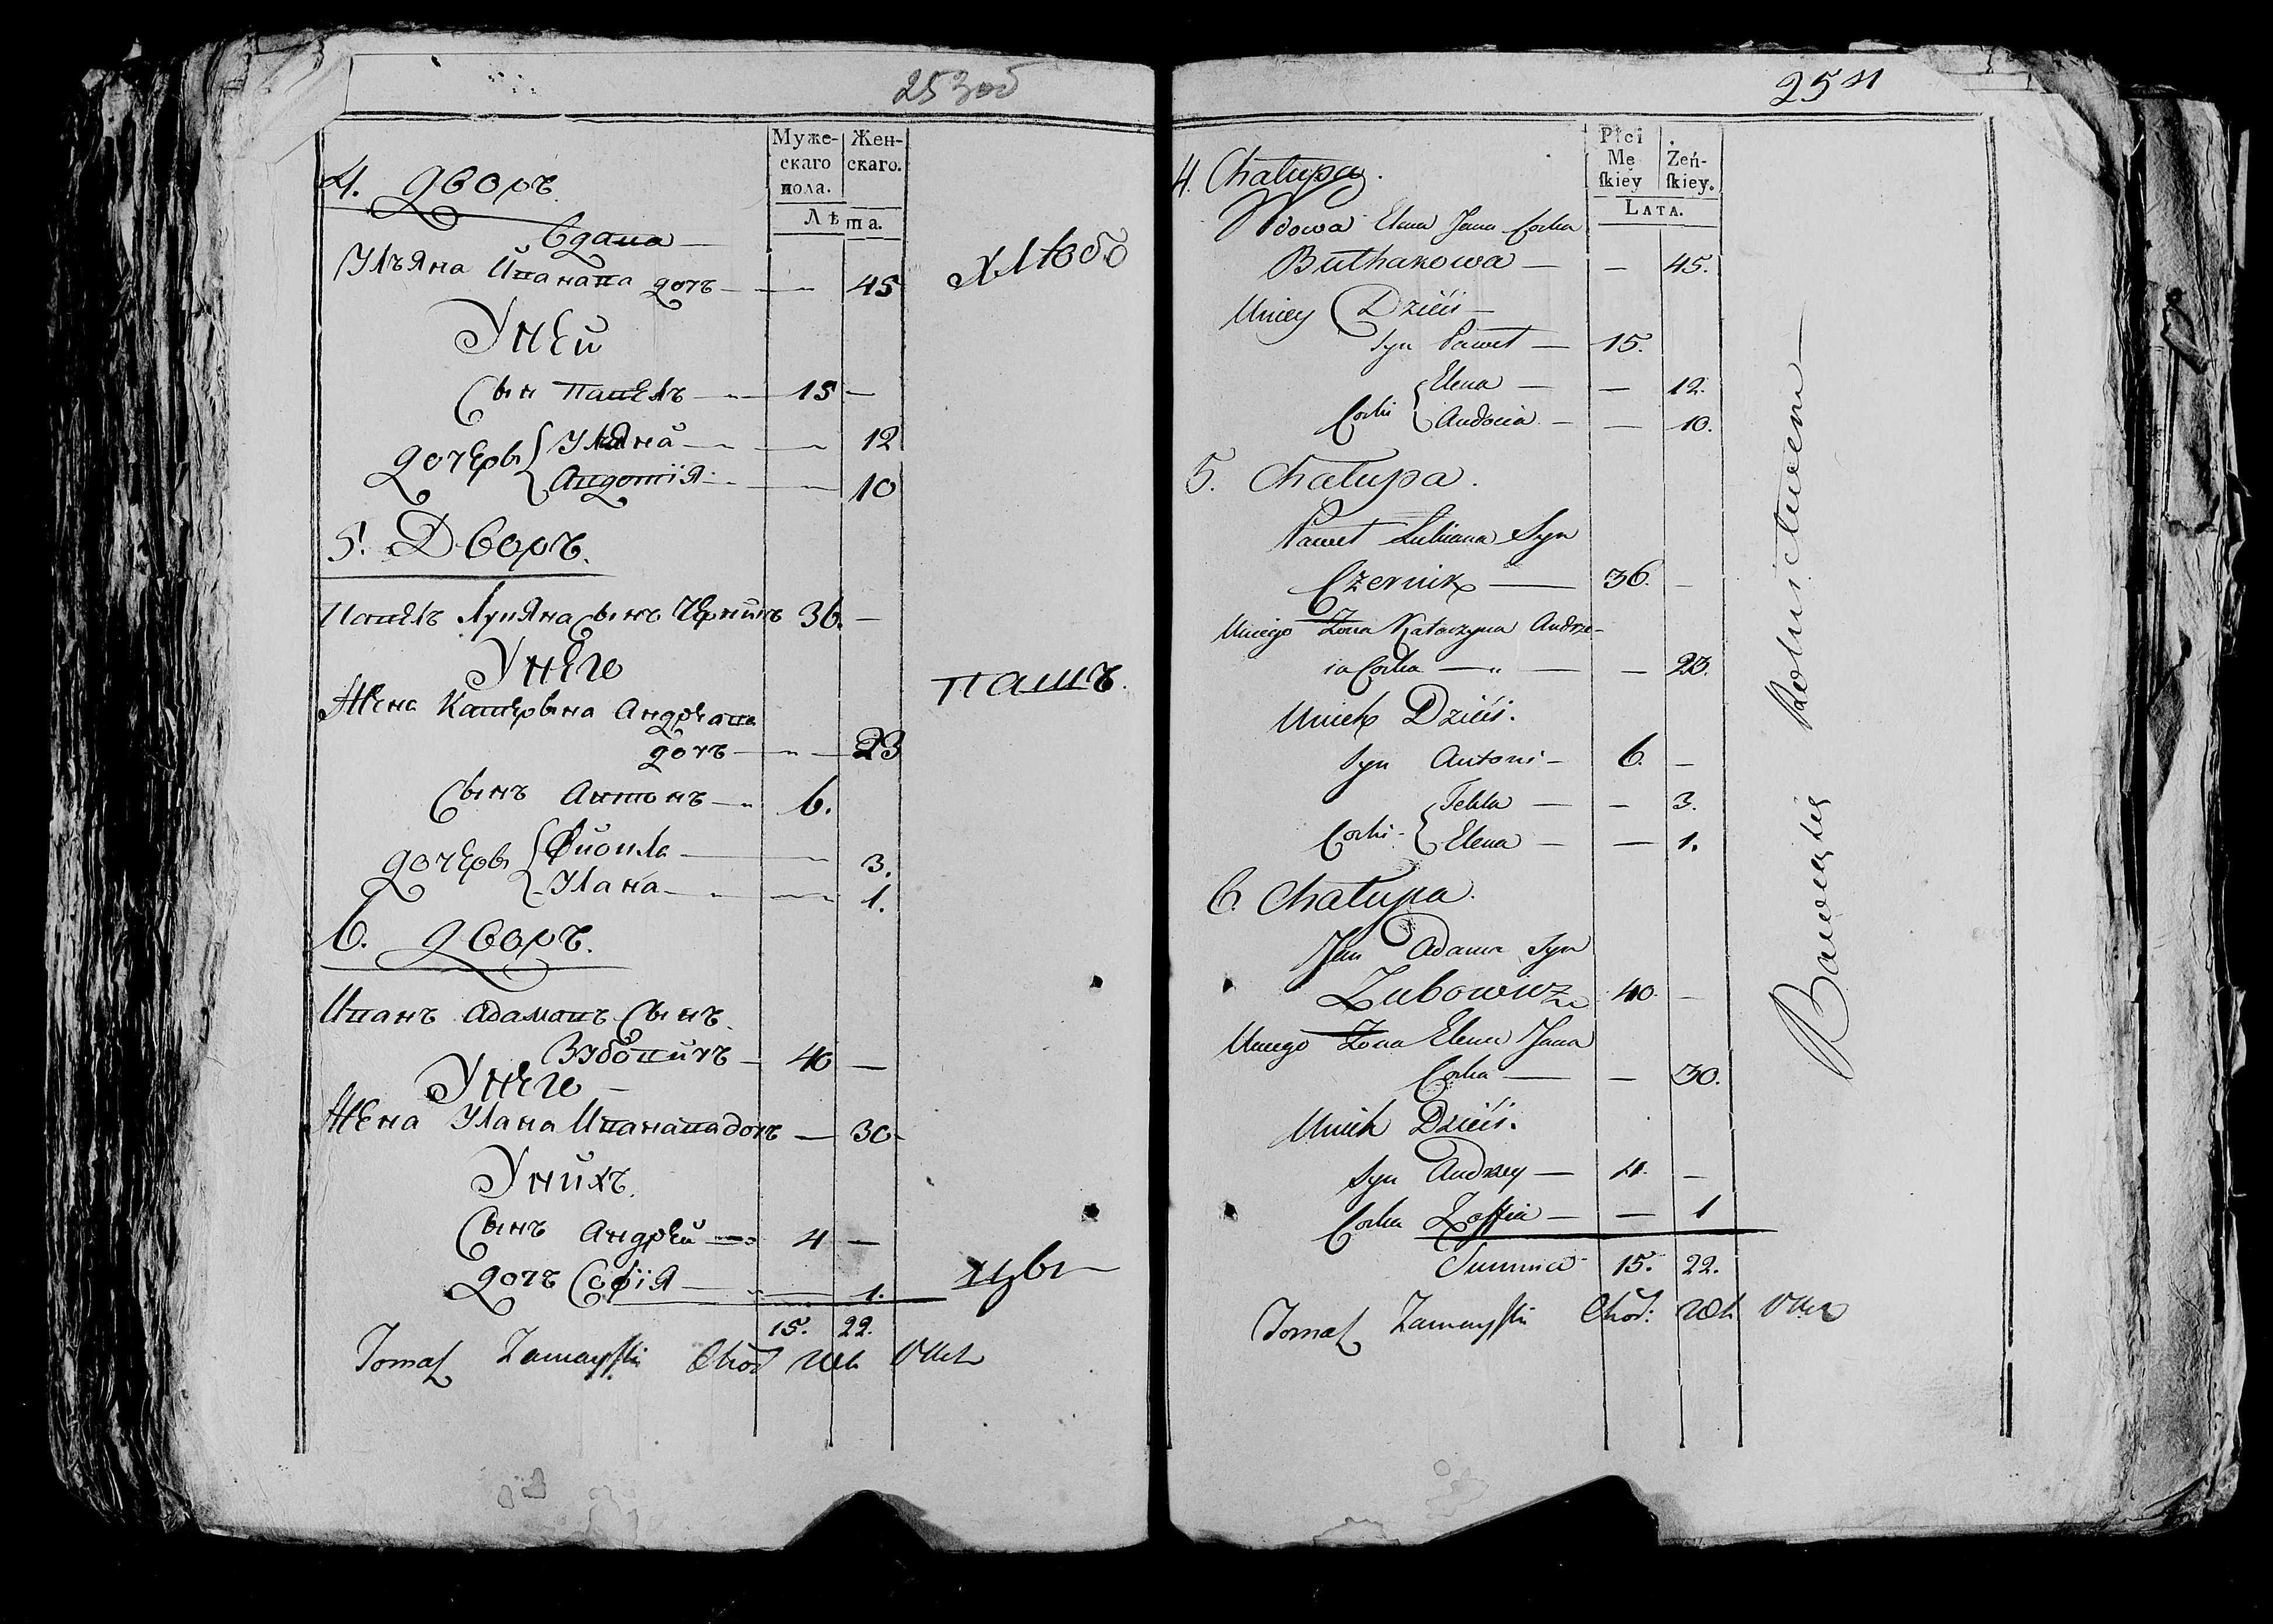 253об
Муже-
скаго
пола.
Жен-
скаго.
Лѣта.
4. дворъ.
Вдава
Ульяна Иванава дочъ — — 45
Хлѣбо
Уней
Сын Павелъ — 15 —
дочеръ { Уляна — — 12
Авдотія — — 10
5. Дворъ.
Павелъ Лукяна Сынъ Черникъ 36. —
Унего
пашъ.
Жена Катерына Андреава
дочъ — — 23
Сынъ Антонъ — 6.
дочеръ { Фиокла — — 3.
Улана — — 1.
6. дворъ.
Иванъ Адамавъ Сынъ
Зубовичъ — 40 —
Унего
Жена Улана Иванавадочъ — 30
Унихъ.
Сынъ Андрей — 4 —
дочъ Софія — — 1.
15. 22.
Tomasz Zamayski
254
Płci
Mę
skiey
Żeń-
skiey.
Lata.
4. Chałupa.
Wdowa Elena Jana Corka
Buthakowa — — 45.
Uniey Dzieci —
Syn Paweł — 15.
Corki { Elena — — 12.
Audocia — — 10.
5. Chałupa.
Paweł Lukiana Syn
Czernik — 36. —
Uniego Żona Katarzyna Andrze-
ia Corka — — 23.
Unich Dzieci.
Syn Antoni — 6. —
Corki { Tekla — — 3.
Elena — — 1.
6. Chałupa.
Jan Adama Syn
Zubowicz 40. —
Uniego Żona Elena Jana
Corka — — 30.
Unich Dzieci.
Syn Andrzey — 4. —
Corka Zoffia — — 1
Summa 15. 22.
Tomasz Zamayski
Rolnictwem